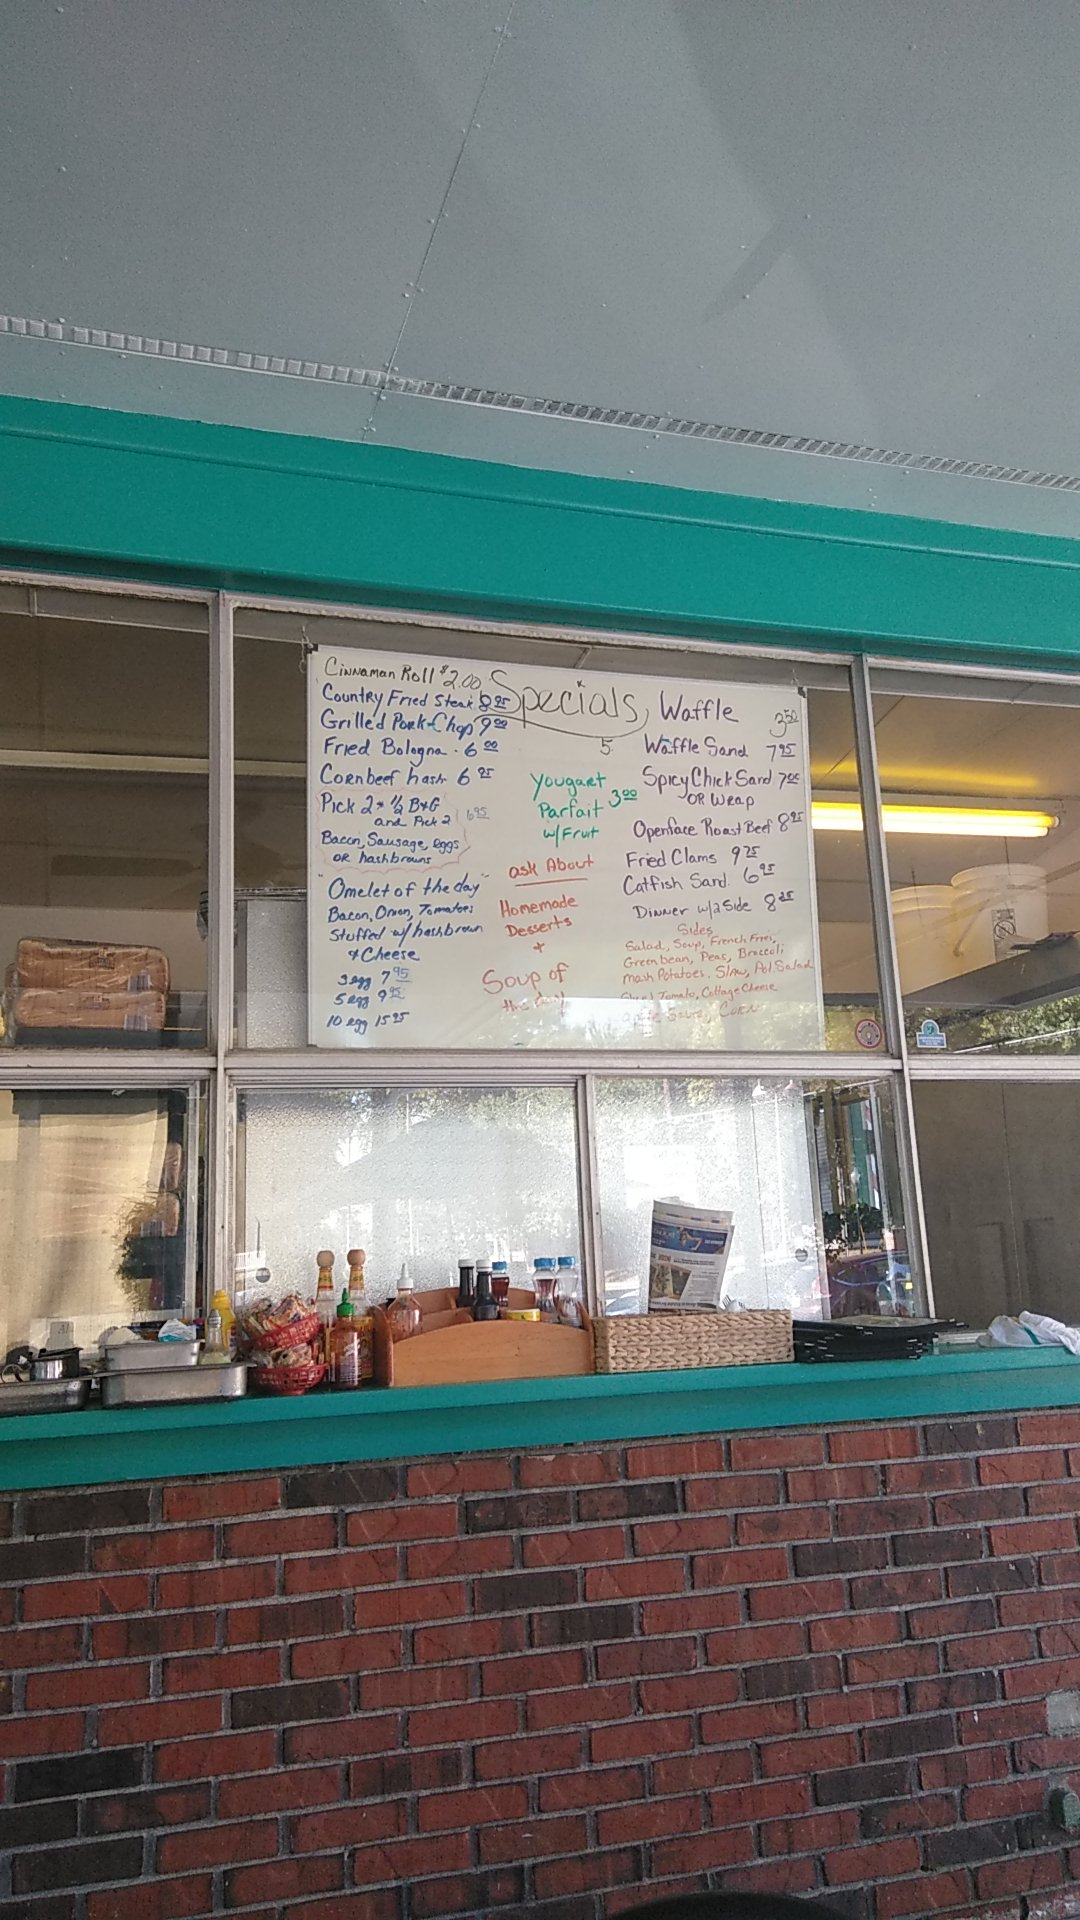 Cinnaman Roll $2.00
Specials
Country Fried Steak 8 95
Grilled Pork Chop 9 00
Fried Bologna - 6 00
Cornbeef hash 6 95
Pick 2 * 1/2 B+G
and Pick 2 6 95
Bacon, Sausage, eggs
OR hashbrowns
"Omelet of the day"
Bacon, Onion, Tomatoes
Stuffed w/ hashbrown
+ Cheese
3 egg 7 95
5 egg 9 95
10 egg 15 95
5.
Yougart
Parfait 3 00
w/Fruit
ask About
Homemade
Desserts
+
Soup of
the Day
Waffle 3 50
Waffle Sand 7 95
Spicy Chick Sand 7 00
OR Wrap
Openface Roast Beef 8 95
Fried Clams 9 25
Catfish Sand. 6 95
Dinner w/2 Side 8 25
Sides
Salad, Soup, French Fries,
Greenbean, Peas, Broccoli
mash Potatoes, Slaw, Pot. Salad
Tomato, Cottage Cheese
Sauce, Corn